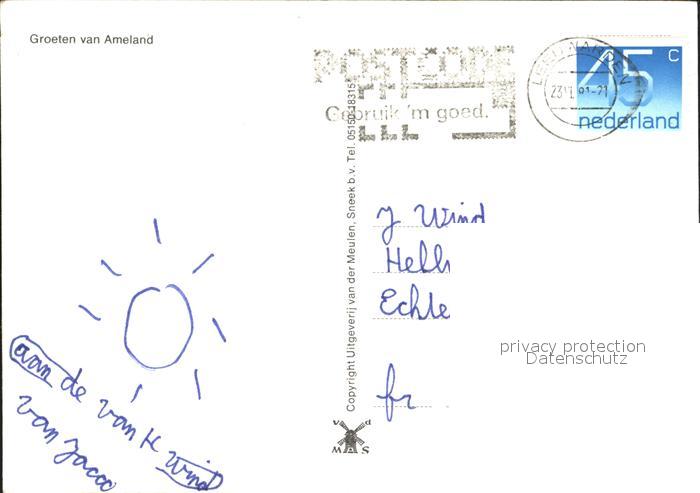 Groeten van Ameland
POSTCODE
Gebruik 'm goed.
LEEUWARDEN
45 c
nederland
Copyright Uitgeverij van der Meulen, Sneek b.v. Tel. 05150-18315
J Wind
Echte
privacy protection
Datenschutz
fr
aan de van
wind
van Jacco
v d
M S